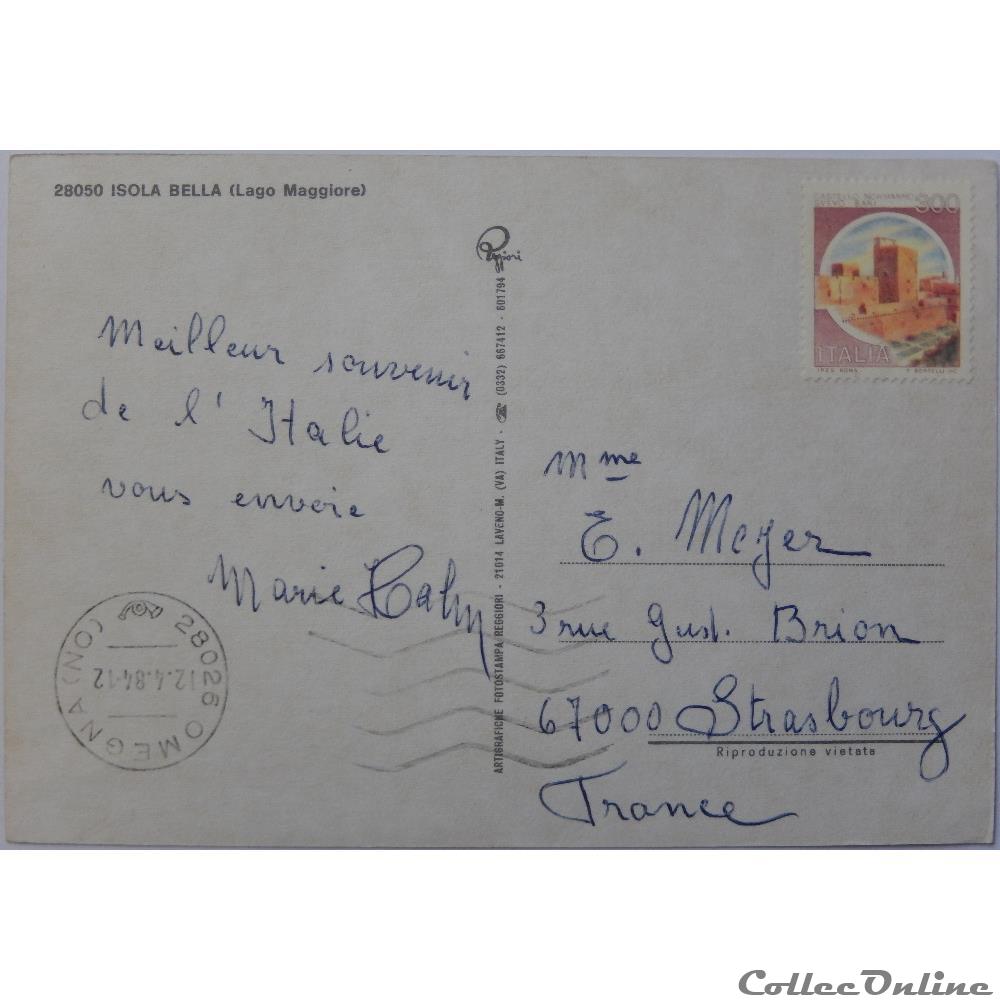 28050 ISOLA BELLA (Lago Maggiore)
Meilleur souvenir
de l'Italie
vous envoie
Marie Hahn
28026 OMEGNA (NO)
12.4.84-12
Reggiori
ARTIGRAFICHE FOTOSTAMPA REGGIORI - 21014 LAVENO-M. (VA) ITALY - ☎ (0332) 667412 - 601794
300
ITALIA
Mme
E. Meyer
3 rue Gust. Brion
67000 Strasbourg
Riproduzione vietata
France
CollecOnline